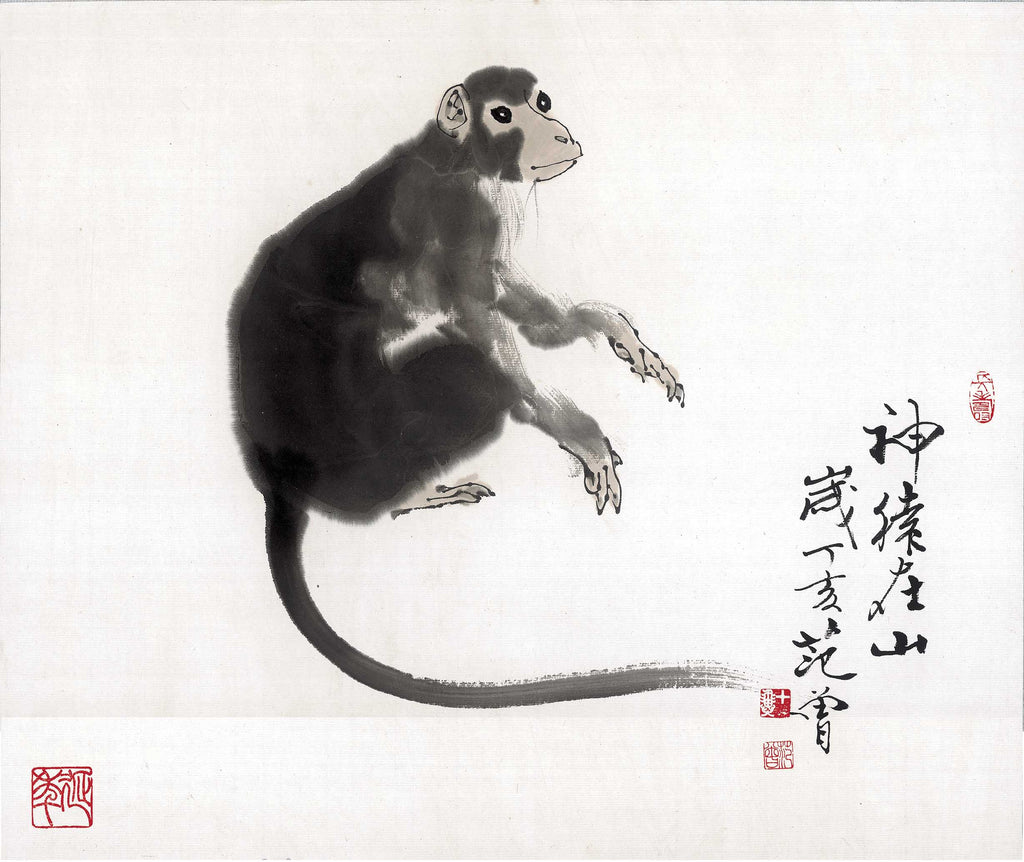 神猿在山
歲丁亥范曾
范曾